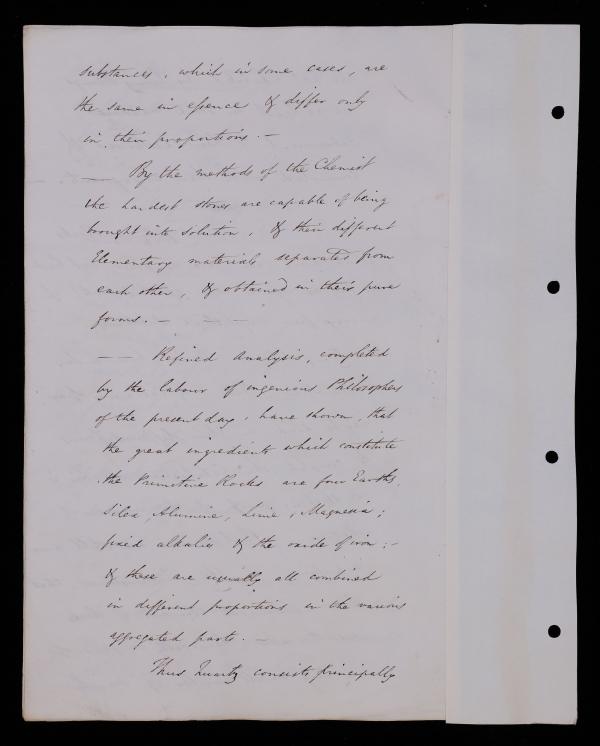 substances, which in some cases, are
the same in essence & differ only
in their proportions. —
— By the methods of the Chemist
the hardest stones are capable of being
brought into solution, & their different
Elementary materials separated from
each other, & obtained in their pure
forms. — — —
— — Refined Analysis, completed
by the labour of ingenious Philosophers
of the present day, have shown, that
the great ingredients which constitute
the Primitive Rocks are four Earths,
Silex, Alumine, Lime, Magnesia;
fixed alkalies & the oxide of iron; —
& these are usually all combined
in different proportions in the various
aggregated parts. —
Thus Quartz consists principally